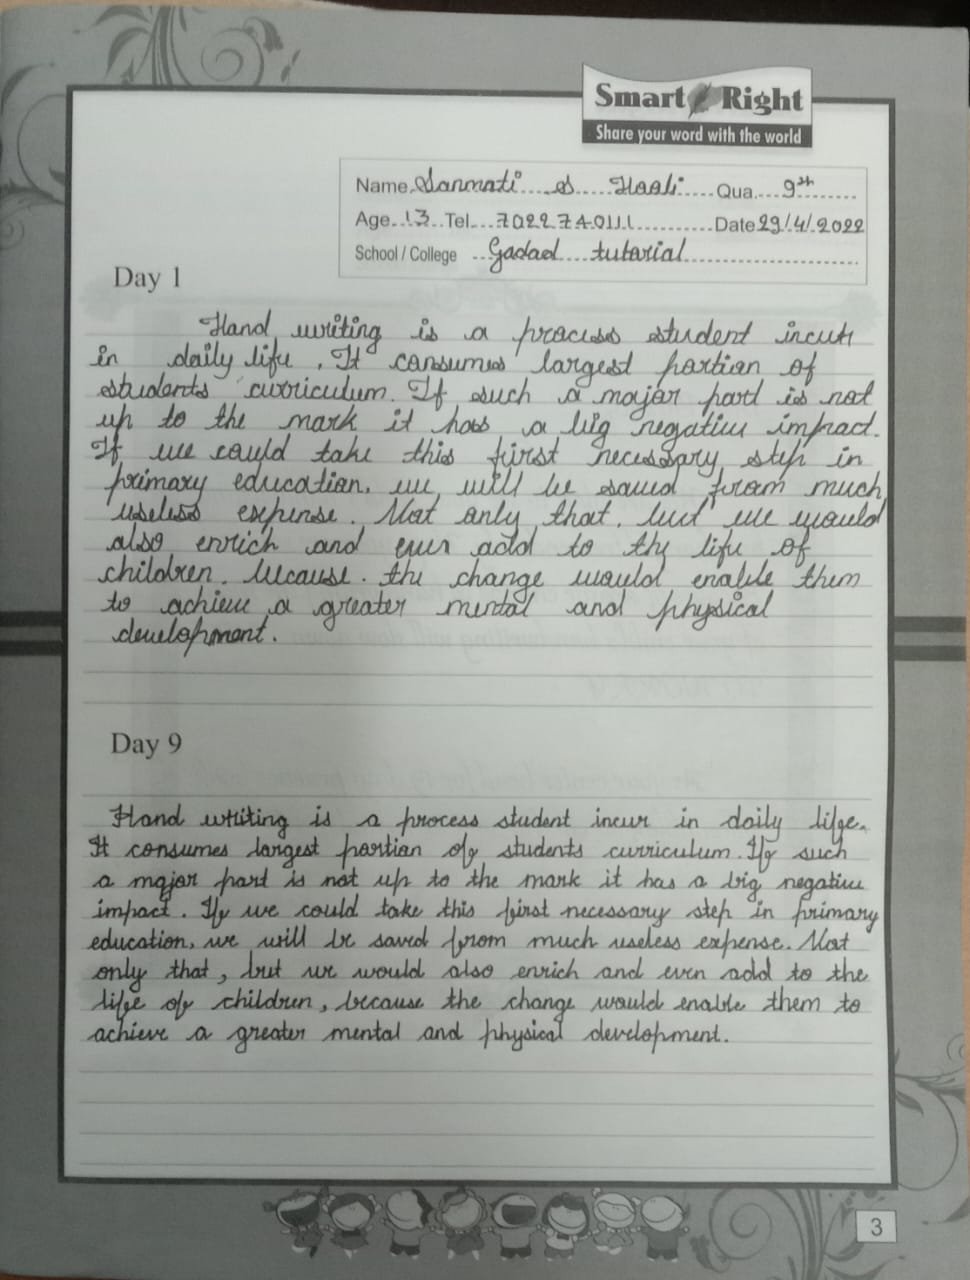 Smart Right
Share your word with the world
Name Sanmati S Hooli Qua. 9th
Age 13 Tel. 7022740111 Date 29/4/2022
School / College Gadad tutorial
Day 1
Hand writing is a process student incur
in daily life. It consumes largest portion of
students curriculum. If such a major part is not
up to the mark it has a big negative impact.
If we could take this first necessary step in
primary education, we will be saved from much
useless expense. Not only that, but we would
also enrich and even add to the life of
children. because. the change would enable them
to achieve a greater mental and physical
development.
Day 9
Hand writing is a process student incur in daily life.
It consumes largest portion of students curriculum. If such
a major part is not up to the mark it has a big negative
impact. If we could take this first necessary step in primary
education, we will be saved from much useless expense. Not
only that, but we would also enrich and even add to the
life of children, because the change would enable them to
achieve a greater mental and physical development.
3